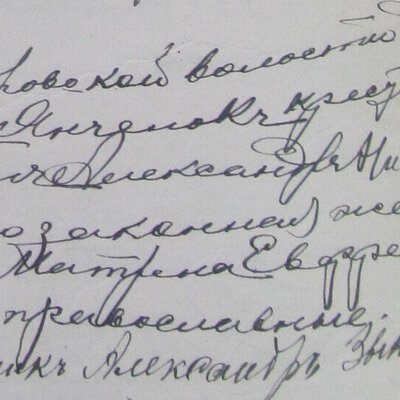 ровской волости
Янченокъ крест
Александръ
законная же
Матрена Евфре
православные.
икъ Александръ Зы